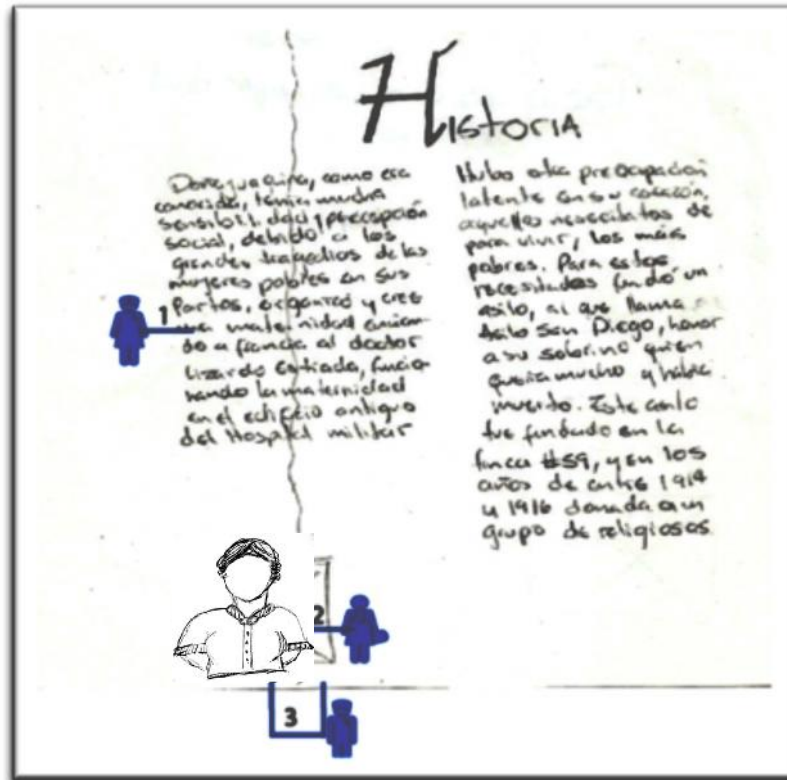 Historia
Doña Joaquina, como era
conocida, tenía mucha
sensibilidad y percepción
social, debido a las
grandes tragedias de las
mujeres pobres en sus
Partos, organizó y creo
una maternidad envian
do a francia al doctor
Lizardo Estrada, funcio
nando la maternidad
en el edificio antiguo
del Hospital militar
Hubo otra preocupación
latente en su corazón,
aquellos necesitados de
para vivir, los más
pobres. Para estos
necesitados fundó un
asilo, al que llama
San Diego, honor
a su sobrino quien
quería mucho y había
muerto. Este asilo
fue fundado en la
finca #59, y en los
años de entre 1914
y 1916 donada a un
grupo de religiosos
1
2
3